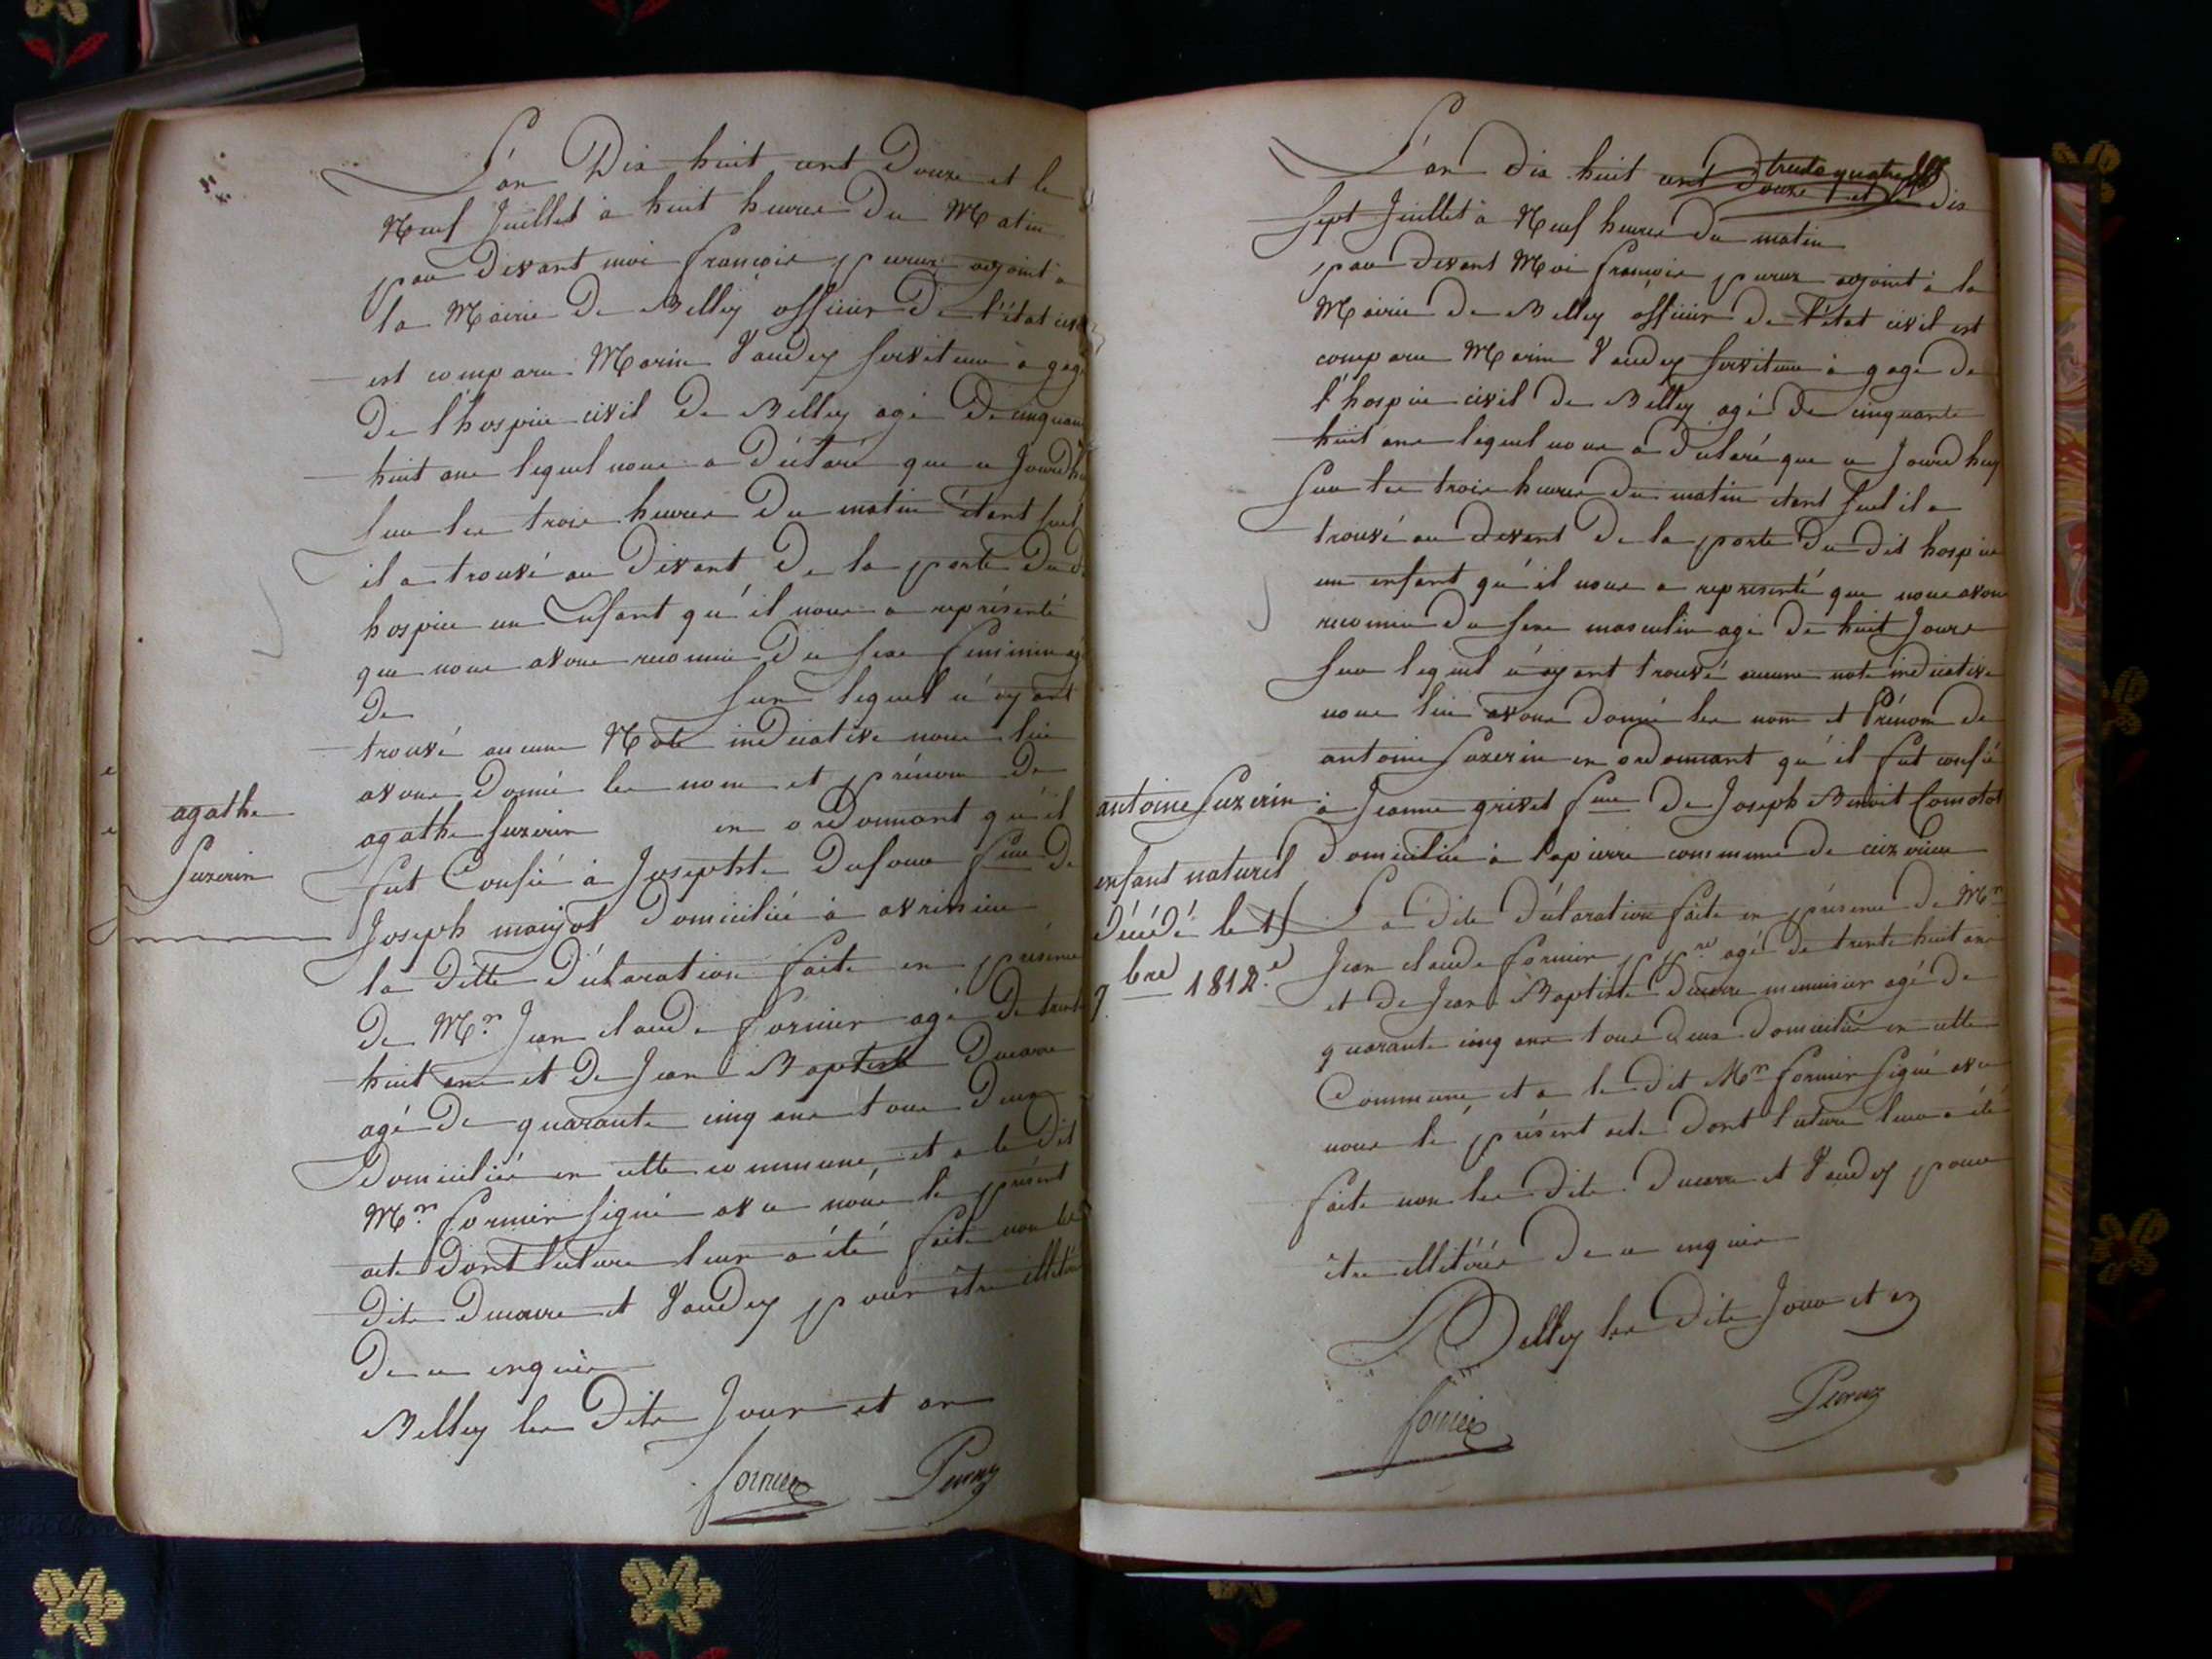 L'an Dix huit cent Douze et le
Neuf Juillet à huit heures Du Matin
par Devant moi françois peruz adjoint à
la Mairie De Belley officier De l'état civil
est comparu Marin Vaudey serviteur à gage
De l'hospice civil De Belley agé De cinquante
huit ans lequel nous a Déclaré que ce Jourd'hui
sur les trois heures Du matin étant seul
il a trouvé au Devant De la porte Du dit
hospice un Enfant qu'il nous a représenté
que nous avons reconnu Du sexe feminin agé
De sur lequel n'ayant
trouvé aucune Note indicative nous lui
avons Donné les nom et prénom De
agathe Suzerin en ordonnant qu'il
agathe
Suzerin
fut Confié à Josephte Dufour fme De
Joseph maujot Domiciliée à
la Ditte Déclaration faite en présence
De Mr. Jean claude fornier agé De trente
huit ans et De Jean Baptiste Ducarre
agé De quarante cinq ans tous Deux
Domiciliés en cette commune, et a le Dit
Mr. fornier signé avec nous le présent
acte Dont lecture leur a été faite non les
Dits Ducarre et Vaudey pour être illétrés
De ce enquis
Belley les Dits Jour et an
fornier Peruz
L'an dix huit cent Douze et le dix
trente quatre
sept Juillet à Neuf heures Du matin
par devant Moi françois peruz adjoint à la
Mairie De Belley officier De l'état civil est
comparu Marin Vaudey serviteur à gage De
l'hospice civil De Belley agé De cinquante
huit ans lequel nous a Déclaré que ce Jourd'huy
sur les trois heures Du matin étant seul il a
trouvé au devant De la porte Du Dit hospice
un enfant qu'il nous a représenté que nous avons
reconnu Du sexe masculin agé De huit Jours
sur lequel n'ayant trouvé aucune note indicative
nous lui avons donné les nom et Prénom De
antoine Suzerin en ordonnant qu'il fut confié
antoine Suzerin
à Jeanne grivet fme De Joseph Benoit
enfant naturel
Domiciliée à lapierre commune De
Décédé le
bre 1812.
La dite Déclaration faite en présence De Mr
Jean claude fornier ppre agé De trente huit ans
et De Jean Baptiste Ducarre menuisier agé De
quarante cinq ans tous deux Domiciliés en cette
Commune, et a le dit Mr fornier signé avec
nous le présent acte Dont lecture leur a été
faite non les Dits Ducarre et Vaudey pour
être illétérés De ce enquis
Belley les Dits Jour et an
fornier Peruz